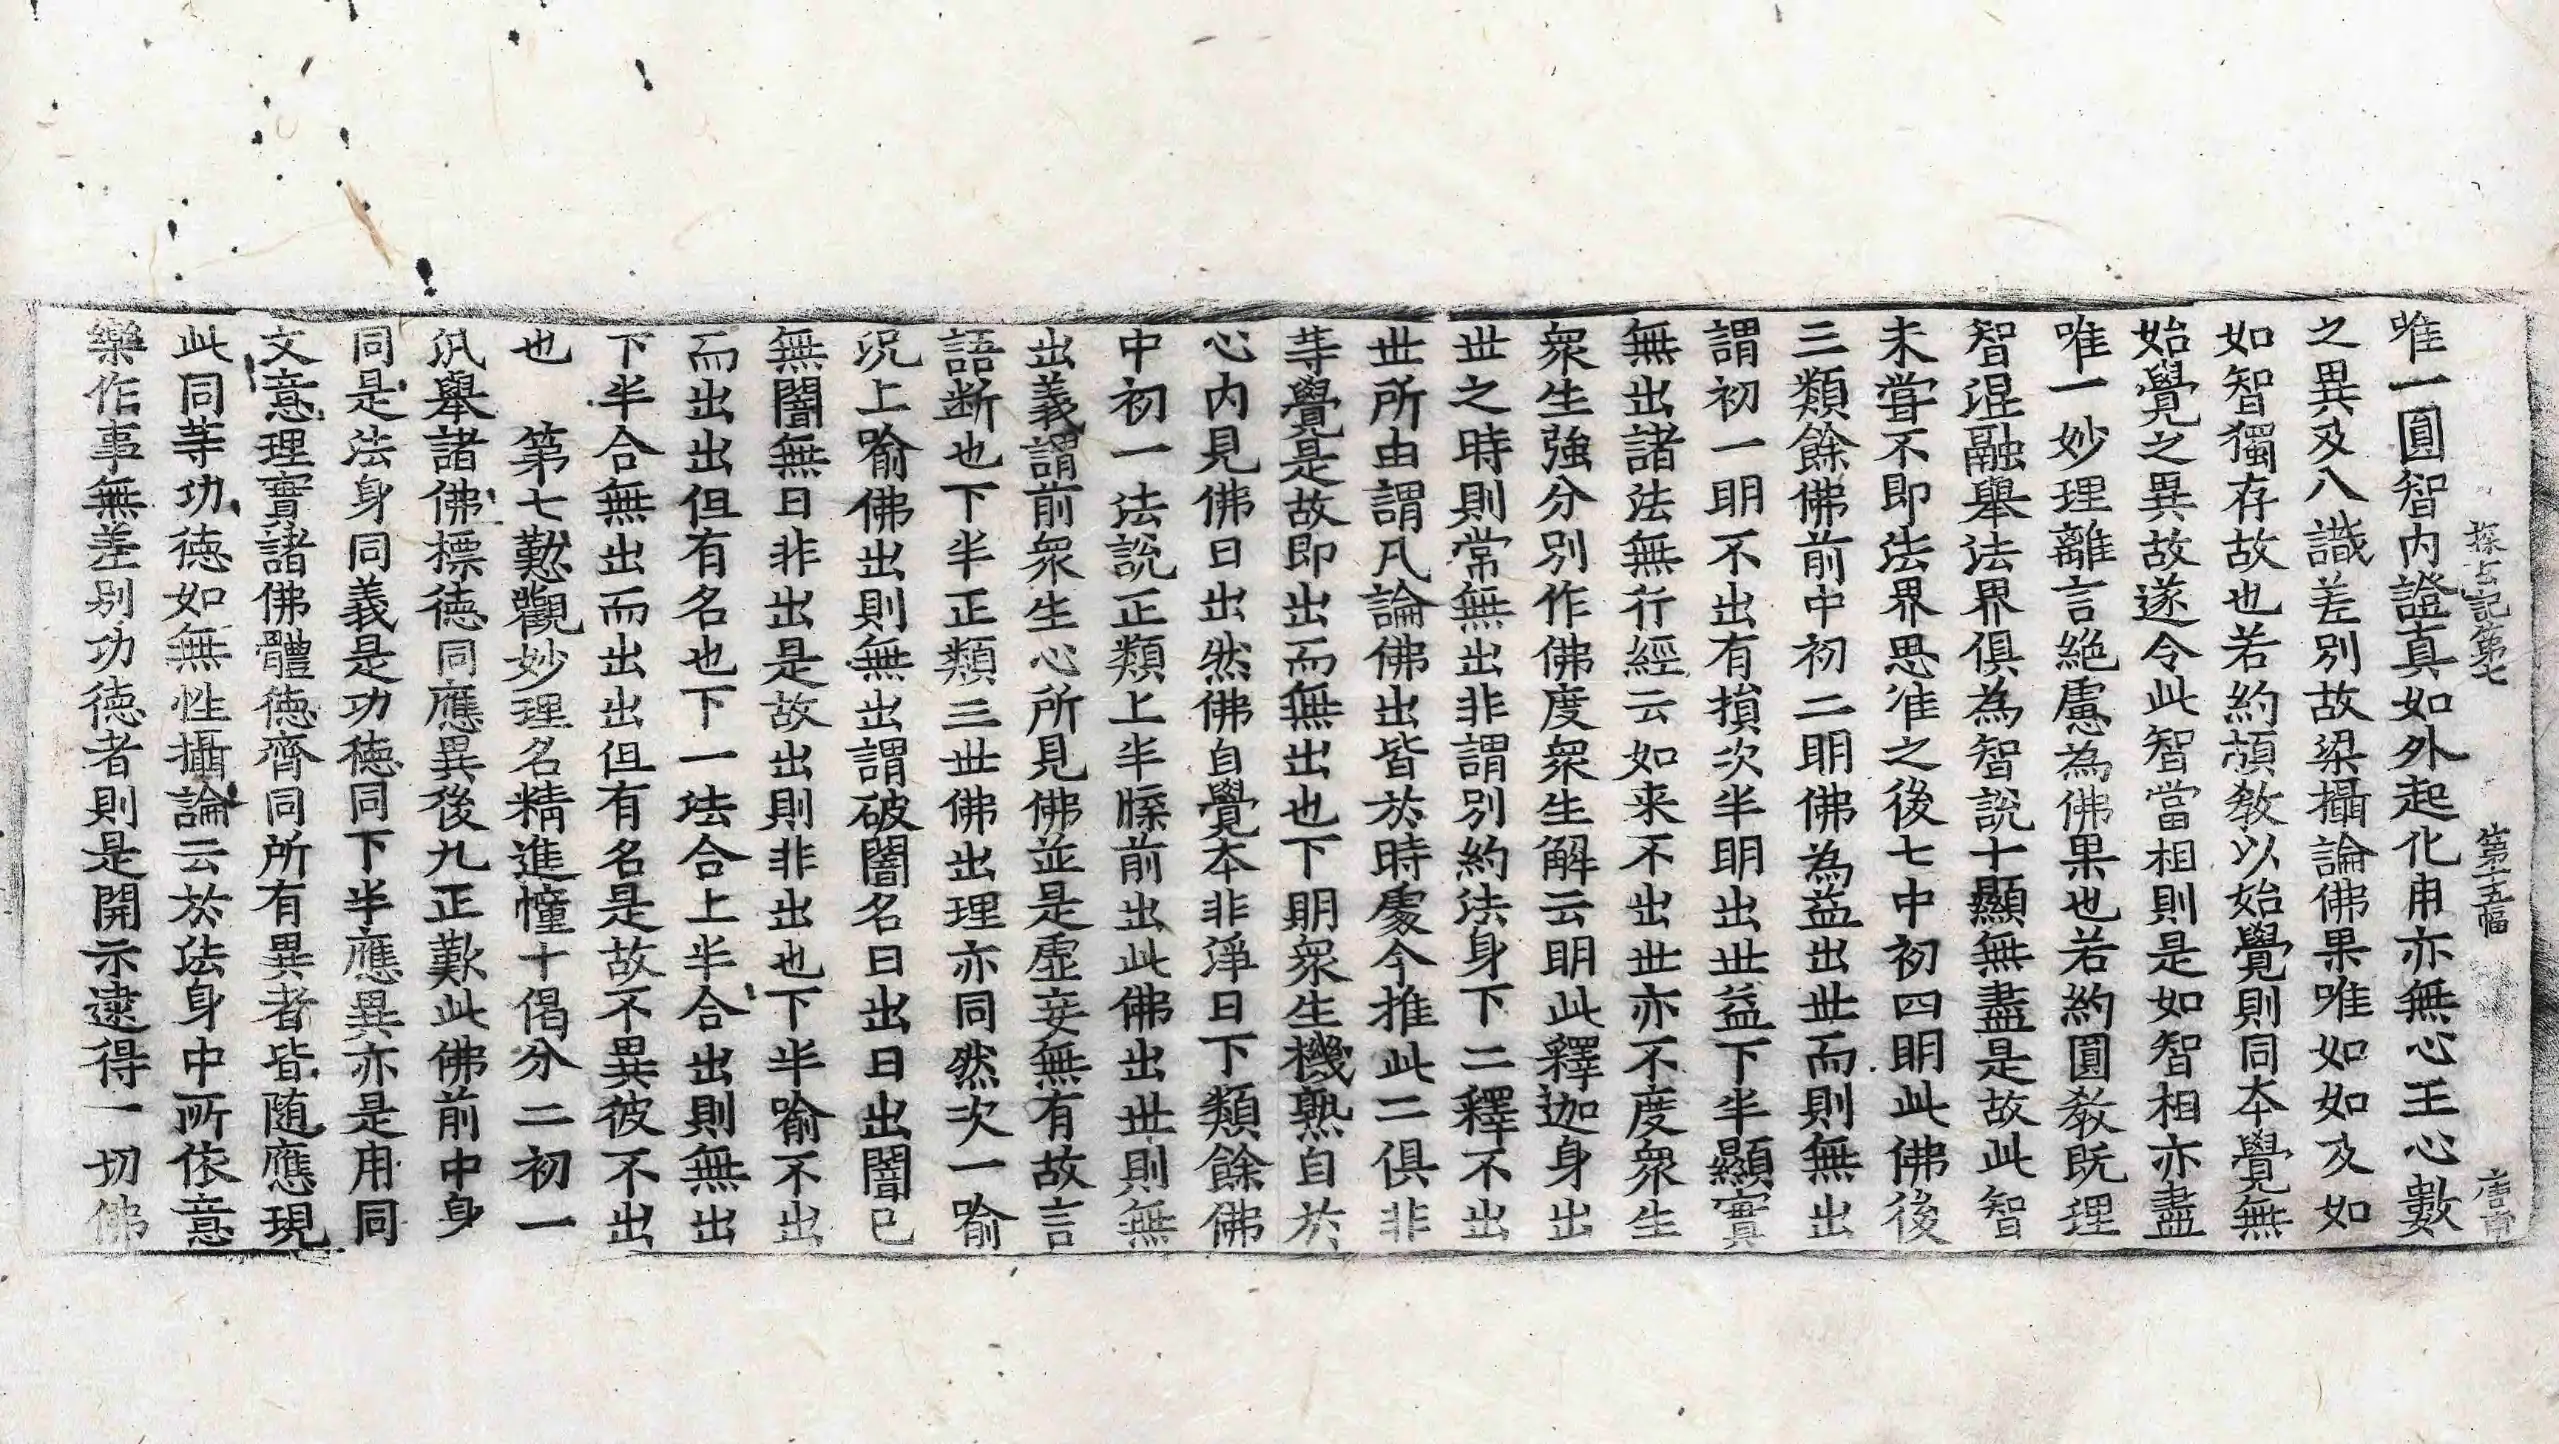 探玄記第七 第十五幅 唐
唯一圓智內證真如外起化用亦無心王心數
之異及八識差別故梁攝論佛果唯如如及如
如智獨存故也若約頓教以始覺則同本覺無
始覺之異故遂令此智當相則是如智相亦盡
唯一妙理離言絕慮為佛果也若約圓教既理
智混融舉法界俱為智說十顯無盡是故此智
未甞不即法界思准之後七中初四明此佛後
三類餘佛前中初二明佛為益出世而則無出
謂初一明不出有損次半明出世益下半顯實
無出諸法無行經云如来不出世亦不度衆生
衆生強分別作佛度衆生解云明此釋迦身出
世之時則常無出非謂別約法身下二釋不出
世所由謂凡論佛出皆於時處今推此二俱非
䓁覺是故即出而無出也下明衆生機熟自於
心内見佛日出然佛自覺本非淨日下類餘佛
中初一法說正類上半牒前出此佛出世則無
出義謂前衆生心所見佛並是虛妄無有故言
語断也下半正類三世佛出理亦同然次一喻
況上喻佛出則無出謂破闇名日出日出闇已
無闇無日非出是故出則非出也下半喻不出
而出出但有名也下一法合上半合出則無出
下半合無出而出出但有名是故不異彼不出
也　第七歎觀妙理名精進幢十偈分二初一
汎舉諸佛標德同應異後九正歎此佛前中身
同是法身同義是功德同下半應異亦是用同
文意理實諸佛體德齊同所有異者皆随應現
此同䓁功德如無性攝論云於法身中所依意
樂作事無差别功德者則是開示逮得一切佛